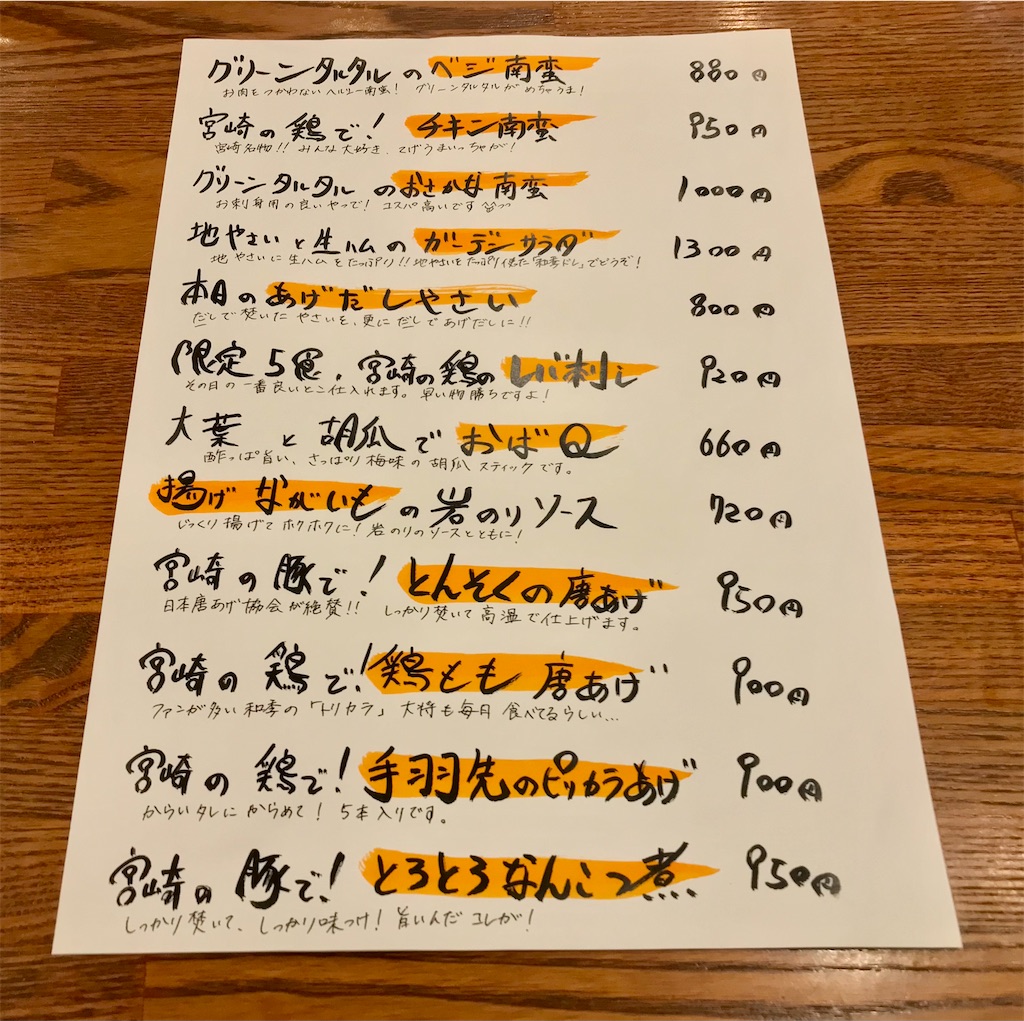 グリーンタルタルのベジ南蛮 880円
お肉をつかわないヘルシー南蛮! グリーンタルタルがめちゃうま!
宮崎の鶏で! チキン南蛮 950円
宮崎名物!! みんな大好き、てげうまいっちゃが!
グリーンタルタルのおさかな南蛮 1000円
お刺身用の良いやつで! コスパ高いです
地やさいと生ハムのガーデンサラダ 1300円
地やさいに生ハムをたっぷり!! 地やさいをたっぷり使った「和季ドレ」でどうぞ!
本日のあげだしやさい 800円
だしで焚いたやさいを、更にだしであげだしに!!
限定5食、宮崎の鶏のレバ刺し 920円
その日の一番良いとこ仕入れます。早い物勝ちですよ!
大葉と胡瓜でおばQ 660円
酢っぱ旨い、さっぱり梅味の胡瓜スティックです。
揚げながいもの岩のりソース 720円
じっくり揚げてホクホクに! 岩のりのソースとともに!
宮崎の豚で! とんそくの唐あげ 950円
日本唐あげ協会が絶賛!! しっかり焚いて高温で仕上げます。
宮崎の鶏で! 鶏もも唐あげ 900円
ファンが多い和季の「トリカラ」 大将も毎日食べてるらしい...
宮崎の鶏で! 手羽先のピリカラあげ 900円
からいタレにからめて! 5本入りです。
宮崎の豚で! とろとろなんこつ煮 950円
しっかり焚いて、しっかり味つけ! 旨いんだコレが!